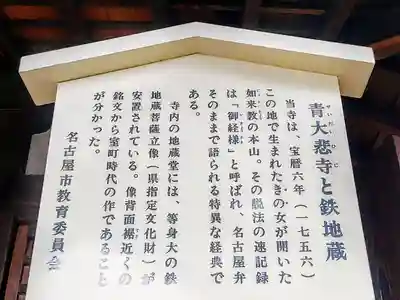 青大悲寺と鉄地蔵
当寺は、宝暦六年(一七五六)
この地で生まれたきの女が開いた
如来教の本山。その説法の速記録
は「御経様」と呼ばれ、名古屋弁
そのままで語られる特異な経典で
ある。
寺内の地蔵堂には、等身大の鉄
地蔵菩薩立像(県指定文化財)が
安置されている。像背面裾近くの
銘文から室町時代の作であること
が分かった。
名古屋市教育委員会